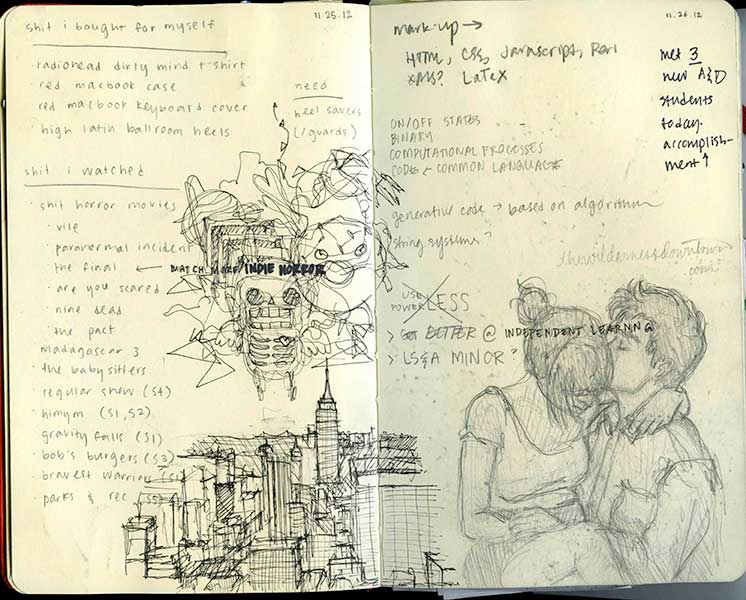 11.25.12
shit i bought for myself
· radiohead dirty mind t-shirt
red macbook case
red macbook keyboard cover
high latin ballroom heels
need
heel savers
(/guards)
shit i watched
· shit horror movies
· vile
· paranormal incident
· the final ← WATCH MORE INDIE HORROR
· are you scared
· nine dead
· the pact
madagascar 3
· the babysitters
· regular show (S4)
· himym (S1, S2)
gravity falls (S1)
· bob's burgers (S3)
bravest warriors (S1)
· parks & rec
11.26.12
mark-up →
HTML, CSS, Javascript, Perl
XMS? LaTeX
met 3
new A&D
students
today.
accomplish-
ment ↑
ON/OFF STATES
BINARY
COMPUTATIONAL PROCESSES
CODE COMMON LANGUAGE
generative code → based on algorithm
string systems?
thewildernessdowntown
.com
USE
POWER
LESS
> GET BETTER @ INDEPENDENT LEARNING
> LS&A MINOR?